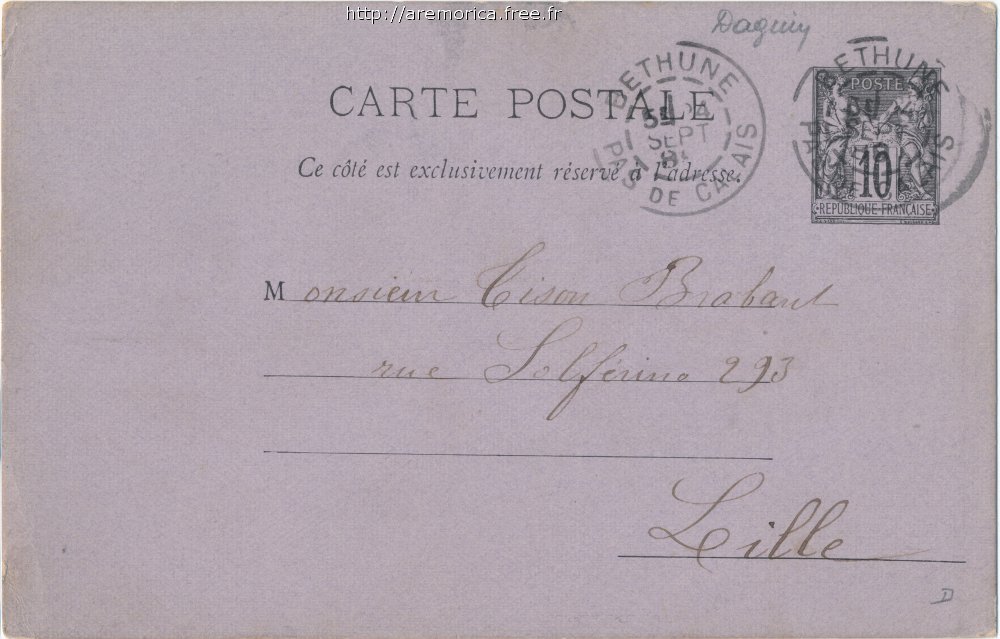 http://aremorica.free.fr
Daguin
CARTE POSTALE
Ce côté est exclusivement réservé à l'adresse.
BETHUNE
SEPT
PAS DE CALAIS
BETHUNE
SEPT
PAS DE CALAIS
POSTE
10
REPUBLIQUE FRANÇAISE
Monsieur Tison Brabant
rue Solférino 293
Lille
D